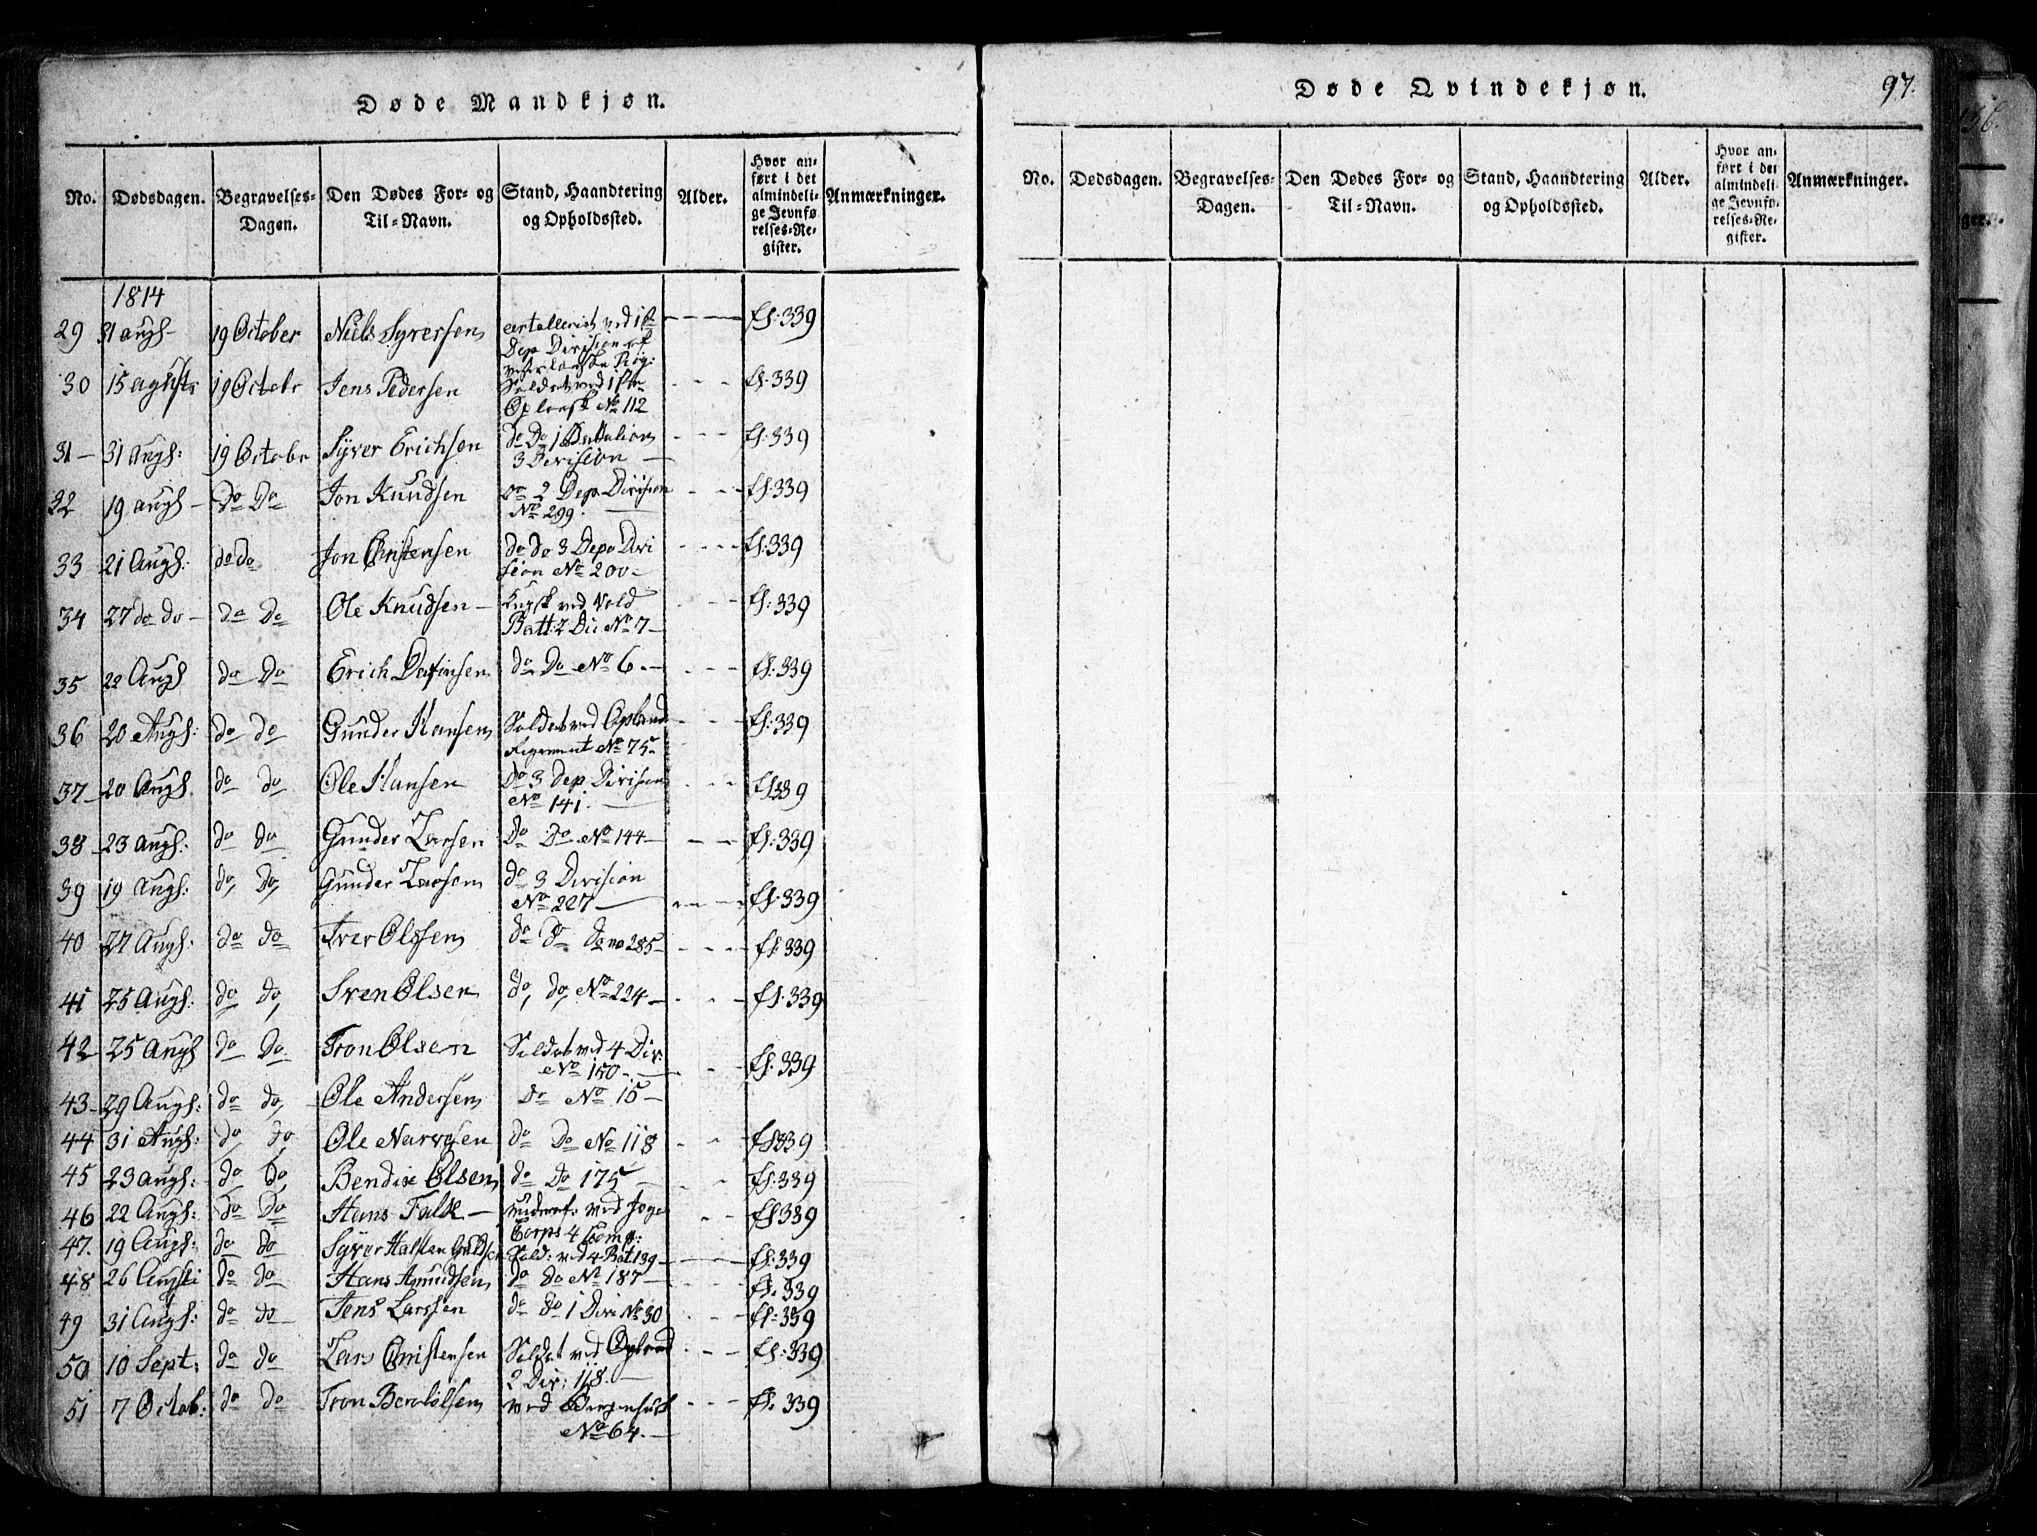 Døde Mandkjøn.
No. Dødsdagen. Begravelses-Dagen. Den Dødes For- og Til-Navn. Stand, Haandtering og Opholdssted. Alder. Hvor anført i det almindelige Jevnførelses-Register. Anmærkninger.
1814
29 31 augs- 19 October Niels Syversen ved 1ste Dep Division fs: 339
30 15 19 Octobr Jens Pedersen Soldat ved 1ste Oplansk No 112 - - - fs: 339
31- 31 Augs: 19 Octobr Syver Erichsen do Do 1 Battalion 3 Devision - - - - fs: 339
32 19 augs - Do Do Jon Knudsen Do 2 Dep Division No 299. - - - fs: 339
33 21 Augs: do do Jon Christensen do do 3 Depo Division No 200- - - - - fs: 339
34 27 do do - Do Do Ole Knudsen - ved Vold Batt: 2 Div No 7- - - - fs: 339
35 22 Augs do Do Erich do Do No 6. - - - - fs: 339
36 20 Augs: do do Gunder Hansen Soldat ved Opland Regement No 75- - - - fs: 339
37- 20 Augs do do Ole Hansen Do 3 Dep Division No 141. - - - - fs 339
38- 23 Augs: do do Gunder Larsen Do Do No 144- - - - fs: 339
39 19 Augs: do, Do, Gunder Larsen do 3 Division No 227 - - - - fs: 339
40 27 Augs: do do Iver Olssen do do do no 285- - - - fs: 339
41 25 Augs: do do, Sven Olsen do, do, No 224- - - - fs: 339
42 25 Augs do Do Tron Olsen Soldat ved 4 Div: No 150. - - - fs: 339
43- 29 Augs: do do, Ole Andersen do No 15-
44 31 Augs: do, do Ole Narvesen do Do No 118 - - fs 339
45 23 augs: do do, Bendix Olsen do Do 175 - - - fs: 339
46 22 Augs: do Do Hans Falk - ved Jæge Corps 4 Comp: - - fs 339
47. 19 Augs: do do Syver Halsten Sold: ved 4 Bat 139- - fs: 339
48 26 Augsti do do Hans Amundsen do do No 187- - - fs. 339
49 31 Augs: do do Jens Larssen do do 1 Divi No 30 - - - fs: 339
50 10 Sept: do do Lars Christensen Soldat ved Opland 2 Div: 118. - - - - fs: 339
51 7 Octob: do do Tron ved No 64. - - - - fs. 339
Døde Qvindekjøn.
97.
No. Dødsdagen. Begravelses-Dagen. Den Dødes For- og Til-Navn. Stand, Haandtering og Opholdssted. Alder. Hvor anført i det almindelige Jevnførelses-Register. Anmærkninger.